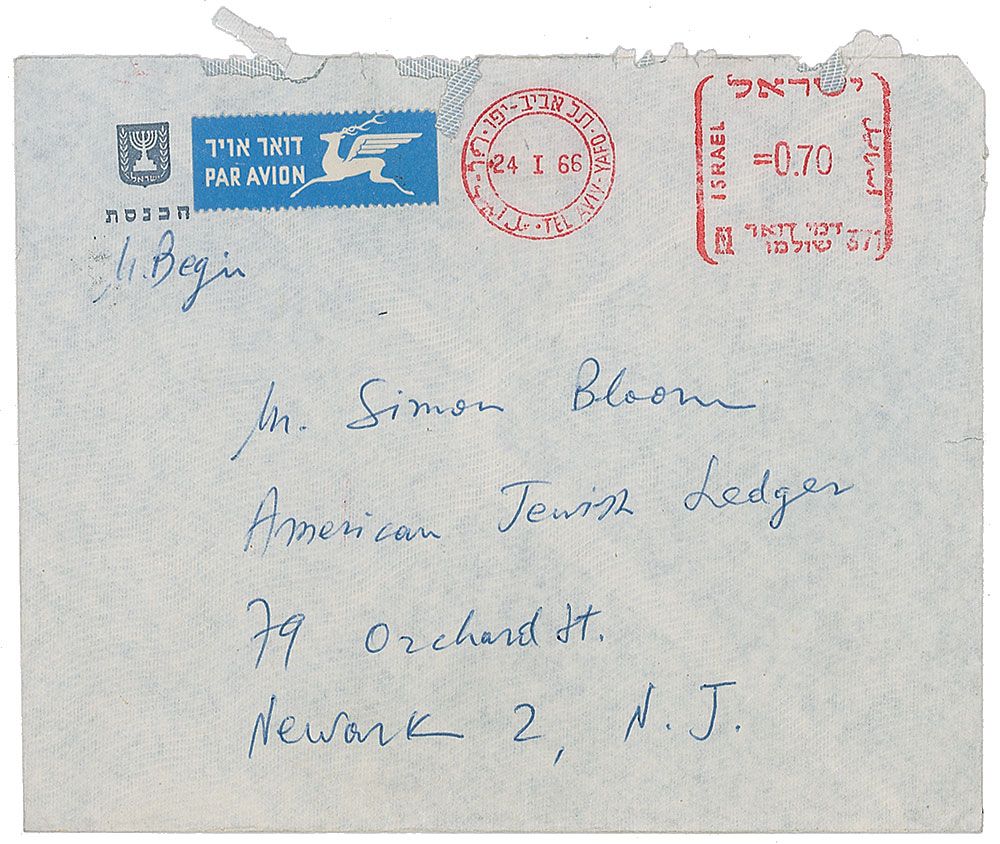 ישראל
הכנסת
דואר אויר
PAR AVION
תל אביב-יפו
24 I 66
TEL AVIV-YAFO
ישראל
ISRAEL
=0.70
דמי דואר
שולמו
M. Begin
Mr. Simon Bloom
American Jewish Ledger
79 Orchard St.
Newark 2, N. J.